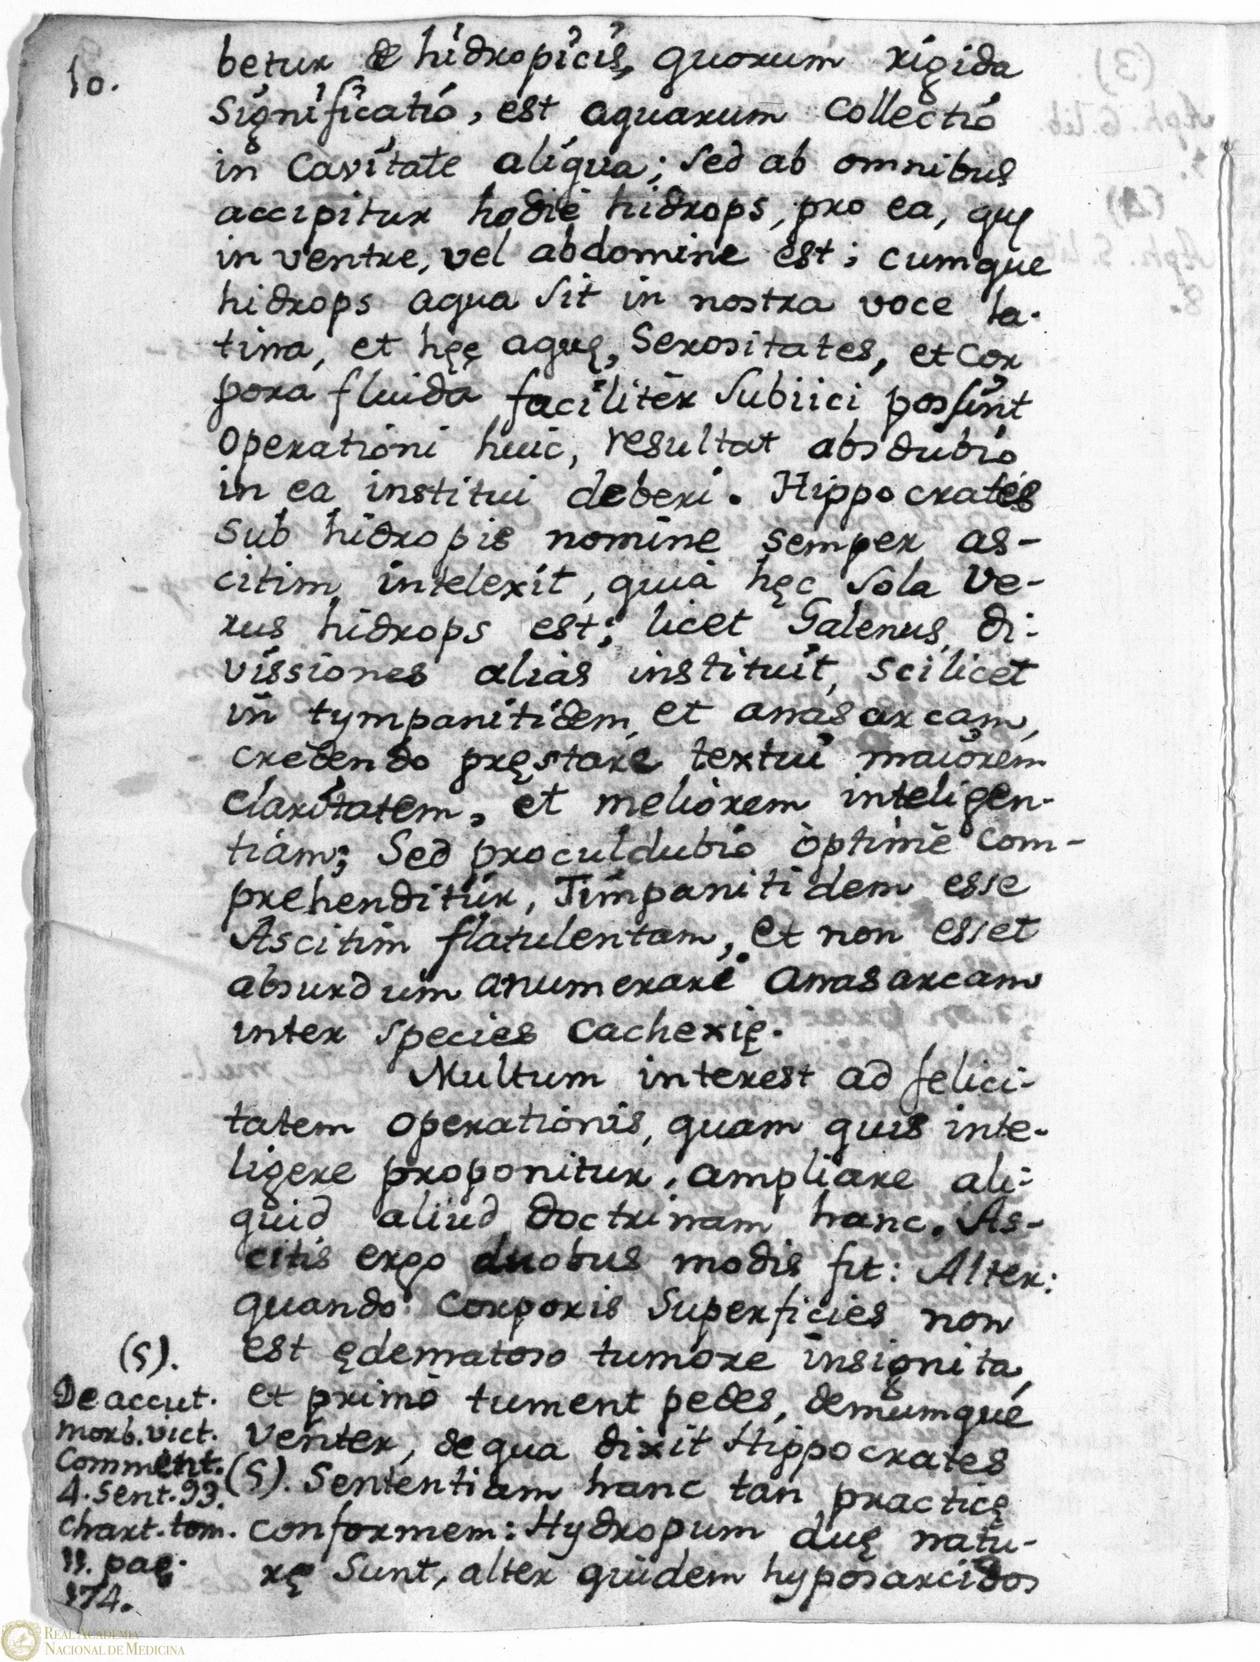 10.
betur & hidropicis, quorum rigida
Significatio, est aquarum Collectio
in Cavitate aliqua; sed ab omnibus
accipitur hodie hidrops, pro ea, quę
in ventre, vel abdomine est; cumque
hidrops aqua sit in nostra voce la-
tina, et hęę aquę, Serositates, et Cor
pora fluida faciliter subiici possint
operationi huic, resultat absdubio
in ea institui deberi. Hippocrates
sub hidropis nomine semper as-
citim intelexit, quia hęc sola ve-
rus hidrops est; licet Galenus di-
vissiones alias instituit, scilicet
in tympanitidem et anasarcam,
credendo pręstare textui maiorem
claritatem, et meliorem inteligen-
tiam; Sed proculdubio optime com-
prehenditur, Timpanitidem esse
Ascitim flatulentam, et non esset
absurdum anumerare Anasarcam
inter species Cachexię.
Multum interest ad felici-
tatem operationis, quam quis inte-
ligere proponitur, ampliare ali-
quid aliud doctrinam hanc. As-
citis ergo duobus modis fit: Alter:
quando Corporis Superficies non
est ędematoso tumore insignita,
et primo tument pedes, demumque
venter, de qua dixit Hippocrates
(5). Sententiam hanc tan practicę
conformem: Hydropum duę natu-
rę Sunt, alter quidem hyposarcidos
(5).
De accut.
morb. vict.
Comment.
4. Sent. 93.
chart. tom.
11. pag.
174.
REAL ACADEMIA
NACIONAL DE MEDICINA